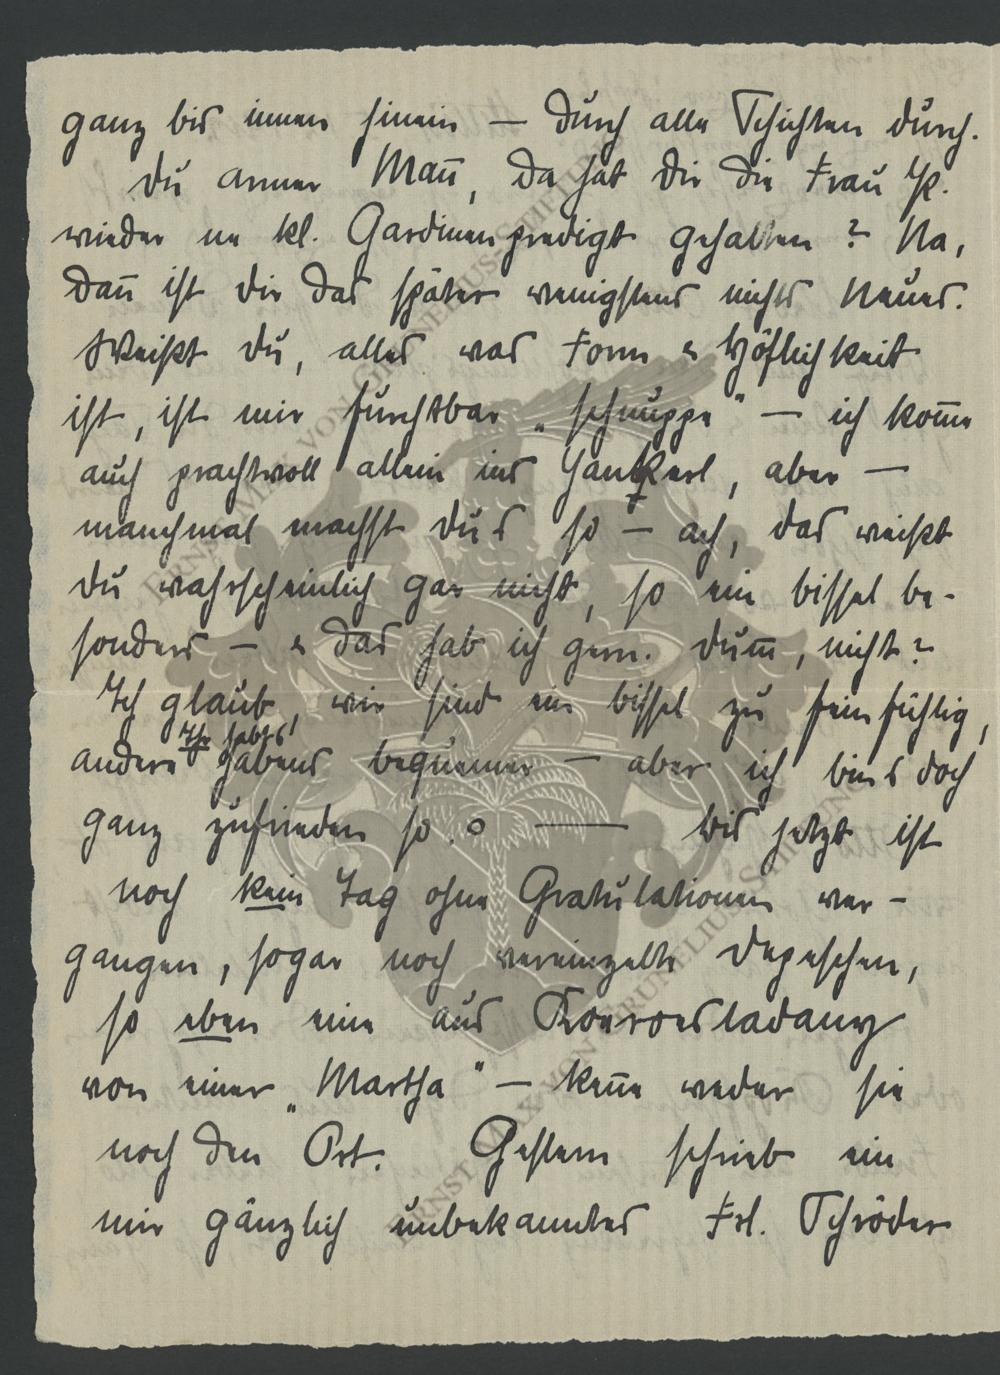 ganz bis innen hinein — durch alle Schichten durch.
Du armer Mañ, da hat dir die Frau K.
wieder ne kl. Gardinenpredigt gehalten? Na,
dañ ist dir das später wenigstens nichts Neues.
Weißt du, alles was Form & Höflichkeit
ist, ist mir furchtbar „schnuppe" — ich kom̄e
auch prachtvoll allein ins, aber —
manchmal machst du's so — ach, das weißt
du wahrscheinlich gar nicht, so ein bissel be-
sonders — & das hab ich gern. Dum̄, nicht?
Ich glaub, wir sind ein bissel zu feinfühlig,
andere habens bequemer — aber ich bin's doch
ganz zufrieden so. — bis jetzt ist
noch kein Tag ohne Gratulationen ver-
gangen, sogar noch vereinzelte Depeschen,
so eben eine aus
von einer „Martha" — keñe weder sie
noch den Ort. Gestern schrieb ein
mir gänzlich unbekanntes Frl. Schröder
ERNST MAX VON GRUNELIUS-STIFTUNG
ERNST MAX VON GRUNELIUS-STIFTUNG